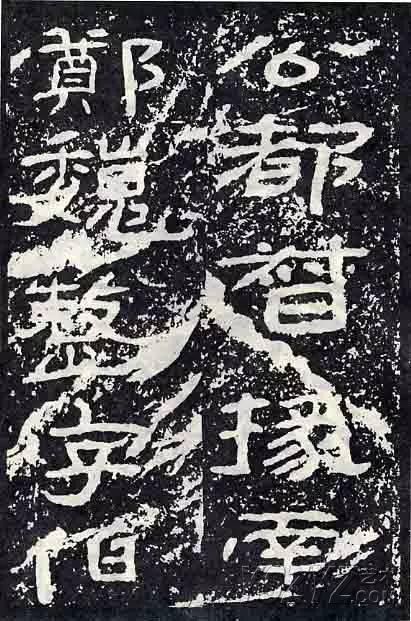 公都督掾南
鄭魏整字伯